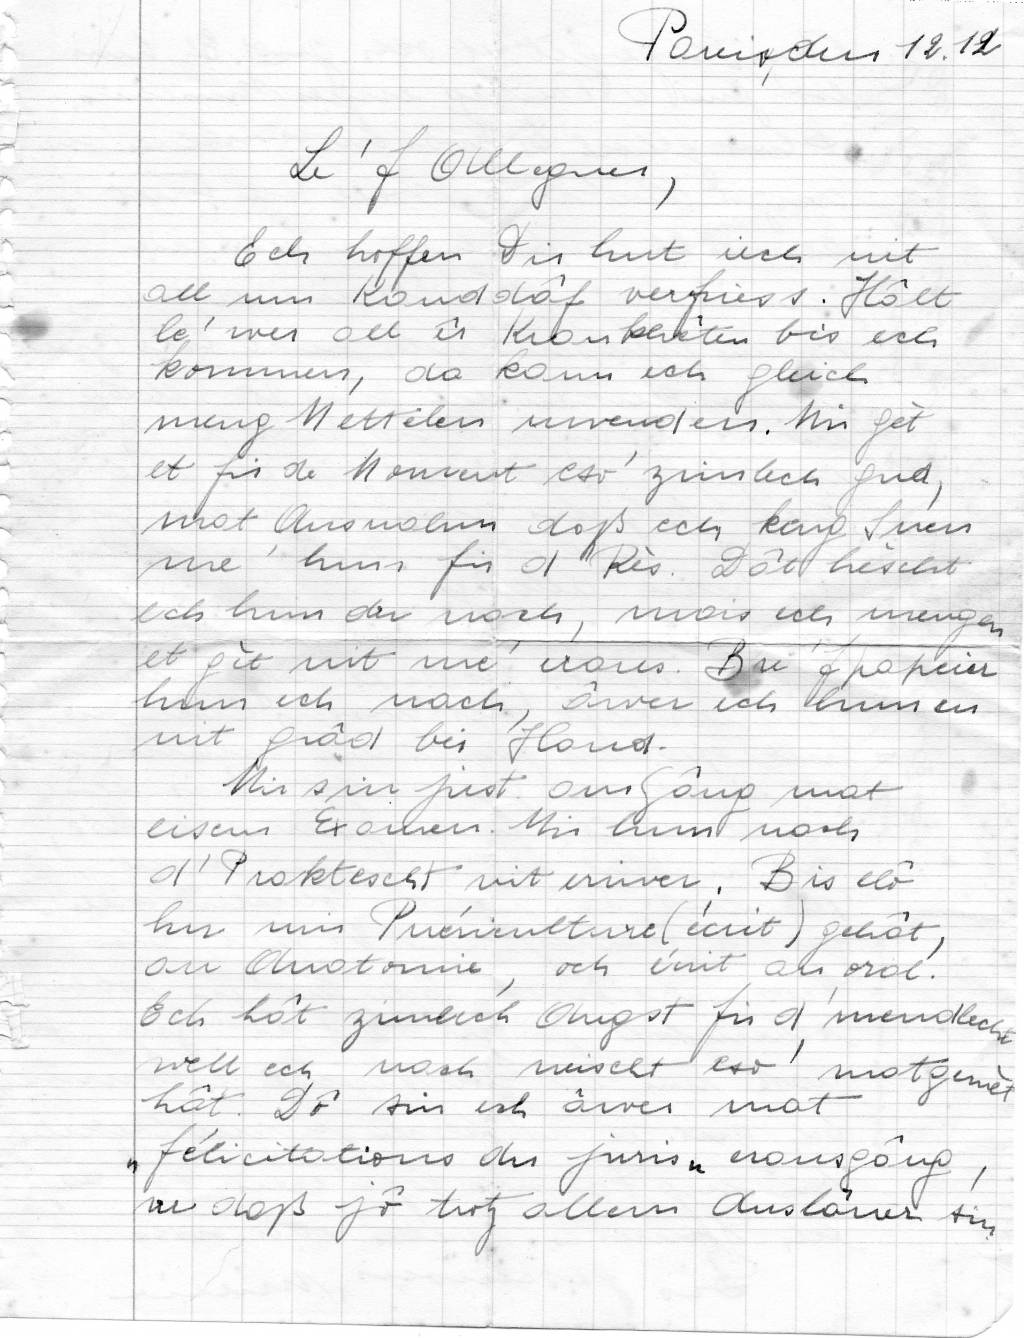 Paris, den 12.12
Le'f Ellegner,
Ech hoffen Dir hut iech nit
all um Kanddâf verfriess. Hâlt
le'wer all är Krankhêten bis ech
kommen, da kann ech gleich
meng Mettelen uwenden. Mir gèt
et fir de Moment eso' zimlech gud,
mat Ausnahm daß ech keng Suen
me' hun fir d'Rès. Dât hèscht
ech hun der nach, mais ech mengen
et gèt nit me' eraus. Bre'fpapeier
hun ech nach, âwer ech hun en
nit grâd bei Hand.
Mir sin just ons gâng mat
eisem Examen. Mir hun nach
d'Praktescht nit eriwer. Bis elô
hu mir Puériculture (écrit) gehât,
an Anatomie, och écrit an oral.
Ech hât zimlech Angst fir d'mendlecht
well ech nach neischt eso' matgemêt
hât. Dô sin ech âwer mat
"félicitations du juris" erausgâng,
we daß jô trotz allem Auslänner sin